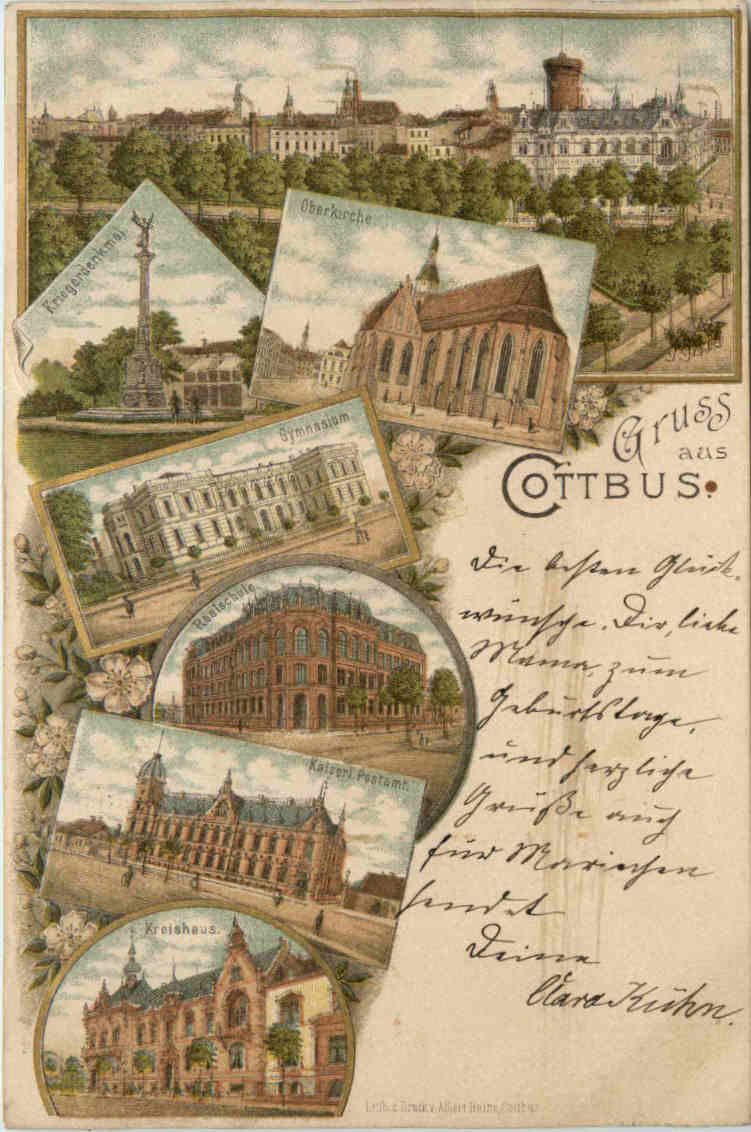 Kriegerdenkmal
Oberkirche
Gymnasium
Realschule
Kaiserl. Postamt.
Kreishaus.
Gruss
aus
COTTBUS.
Die besten Glück-
wünsche, Dir, liebe
Mama, zum
Geburtstage,
und herzliche
Grüße auch
für Mariechen
sendet
Deine
Clara Kühn.
Lith. u. Druck v. Albert Heine, Cottbus